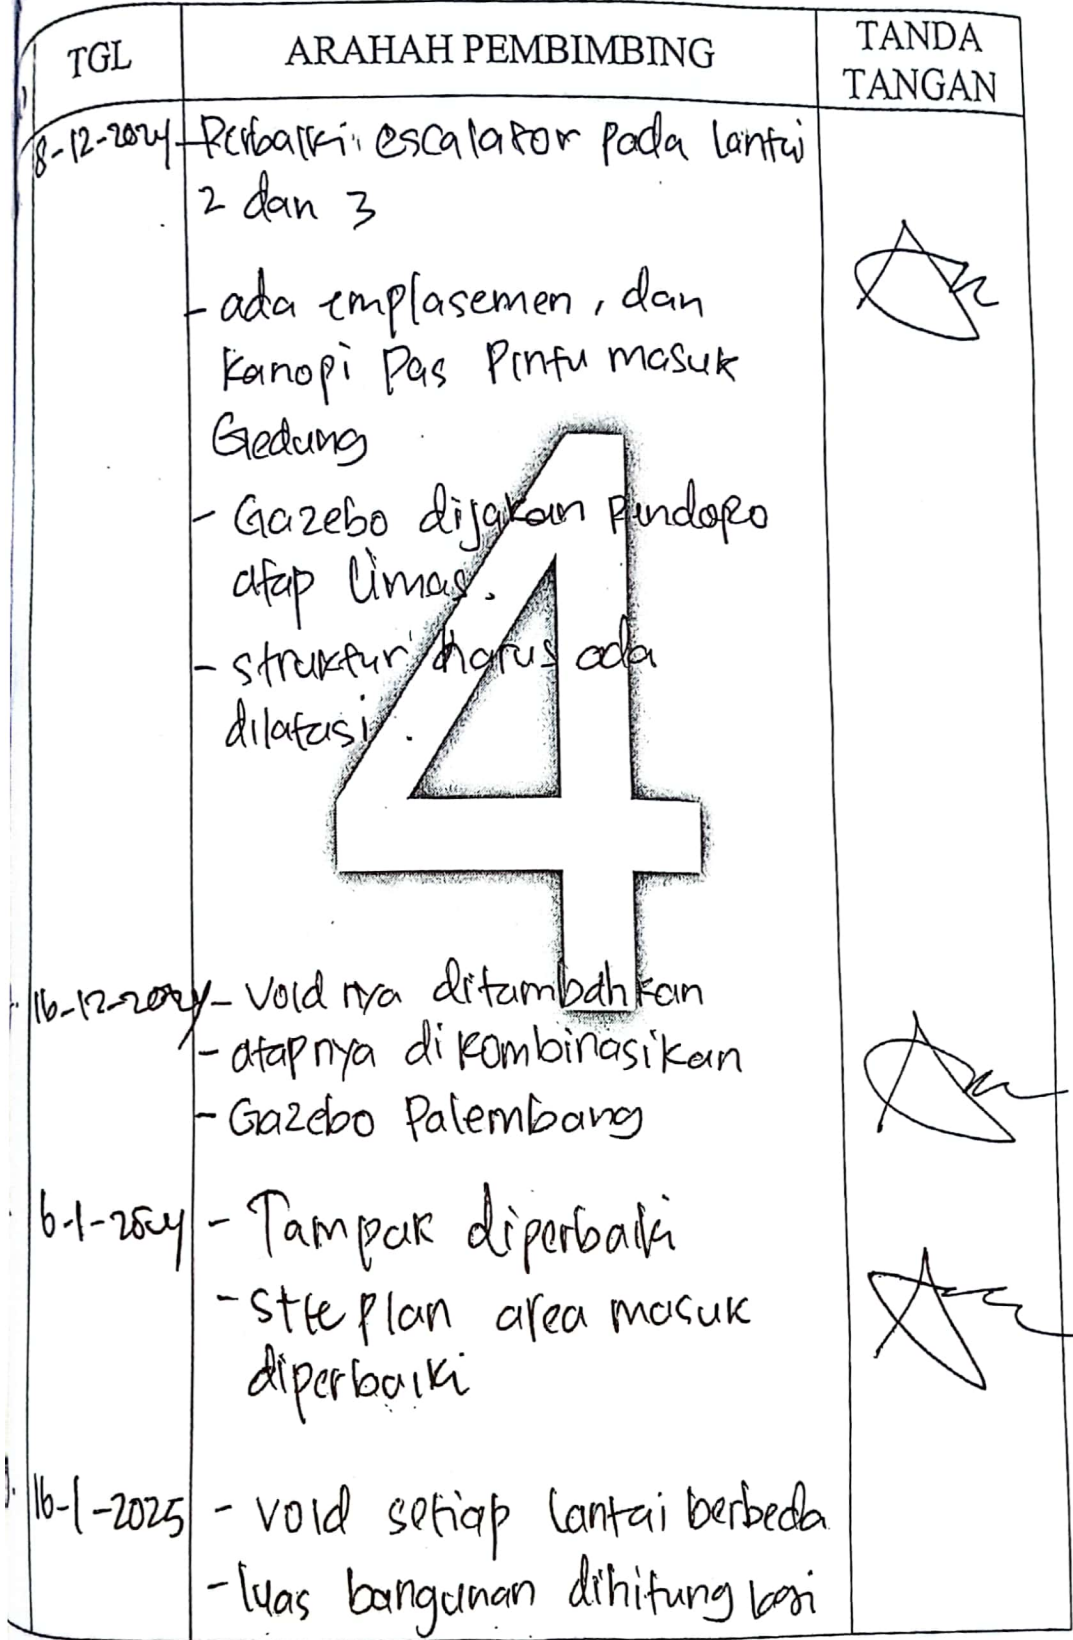 TGL ARAHAH PEMBIMBING TANDA TANGAN
8-12-2024 - Perbaiki escalator pada lantai
2 dan 3
- ada emplasemen, dan
Kanopi Pas Pintu masuk
Gedung
- Gazebo dijakan Pindopo
atap limas.
- struktur harus ada
dilatasi.
4
16-12-2024 - Void nya ditambahkan
- atapnya dikombinasikan
- Gazebo Palembang
6-1-2504 - Tampak diperbaiki
- Site Plan area masuk
diperbaiki
16-1-2025 - void setiap lantai berbeda
- luas bangunan dihitung lagi